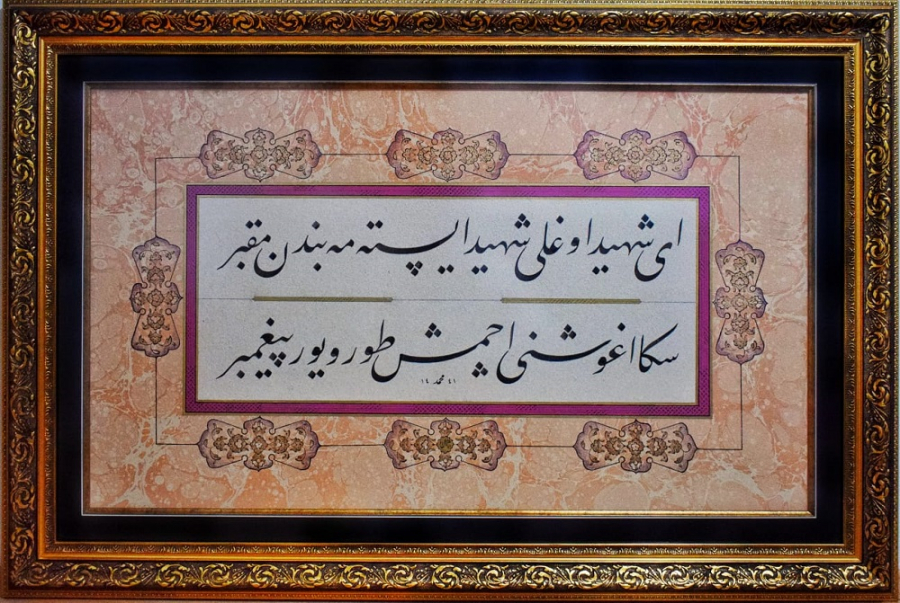 ای شهید اوغلی شهید ایسته مه بندن مقبر
سکا اغوشنی آچمش طورویور پیغمبر
محمد ١٤٤١